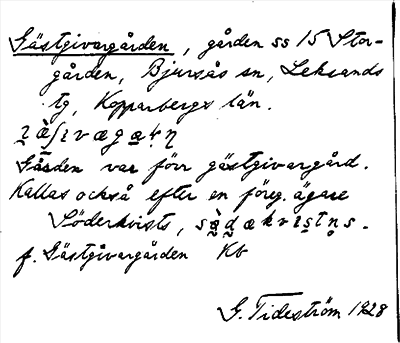 Gästgivargården, gården ss 15 Stor-
gården, Bjursås sn, Leksands
tg, Kopparbergs län.
Gården var förr gästgivargård.
Kallas också efter en föreg. ägare
Söderkvists,
f. Gästgivargården Kb
G. Tideström 1928